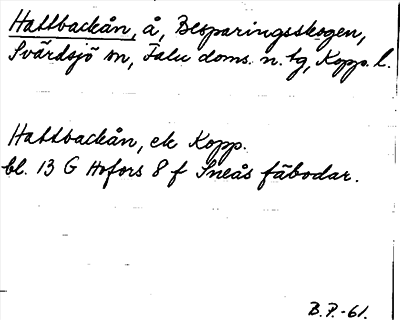 Hattbackån, å, Besparingsskogen,
Svärdsjö sn, Falu doms. n. tg, Kopp. l.
Hattbackån, ek Kopp.
bl. 13 G Hofors 8 f Sneås fäbodar.
B.P.-61.